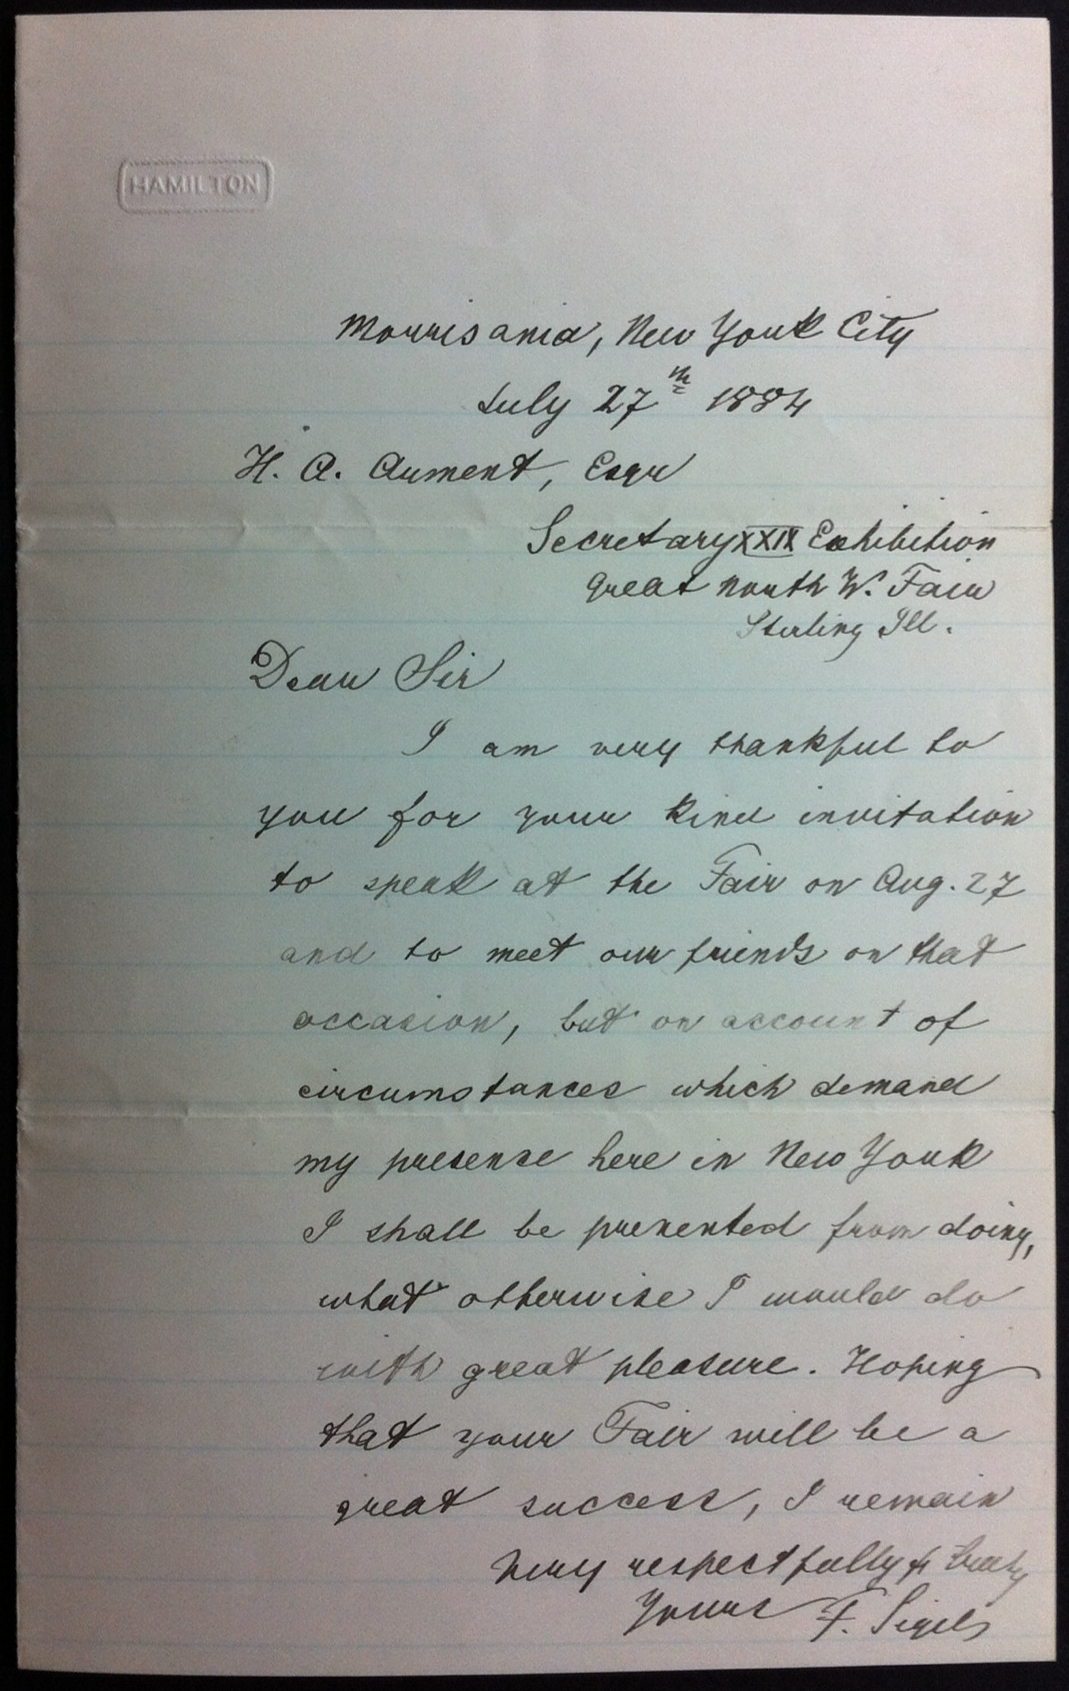 HAMILTON
Morrisania, New York City
July 27th 1884
H. A. Aument, Esqr
Secretary XXIX Exhibition
Great North W. Fair
Sterling Ill.
Dear Sir
I am very thankful to
you for your kind invitation
to speak at the Fair on Aug. 27
and to meet our friends on that
occasion, but on account of
circumstances which demand
my presence here in New York
I shall be prevented from doing,
what otherwise I would do
with great pleasure. Hoping
that your Fair will be a
great success, I remain
very respectfully & truly
Yours F. Sigel